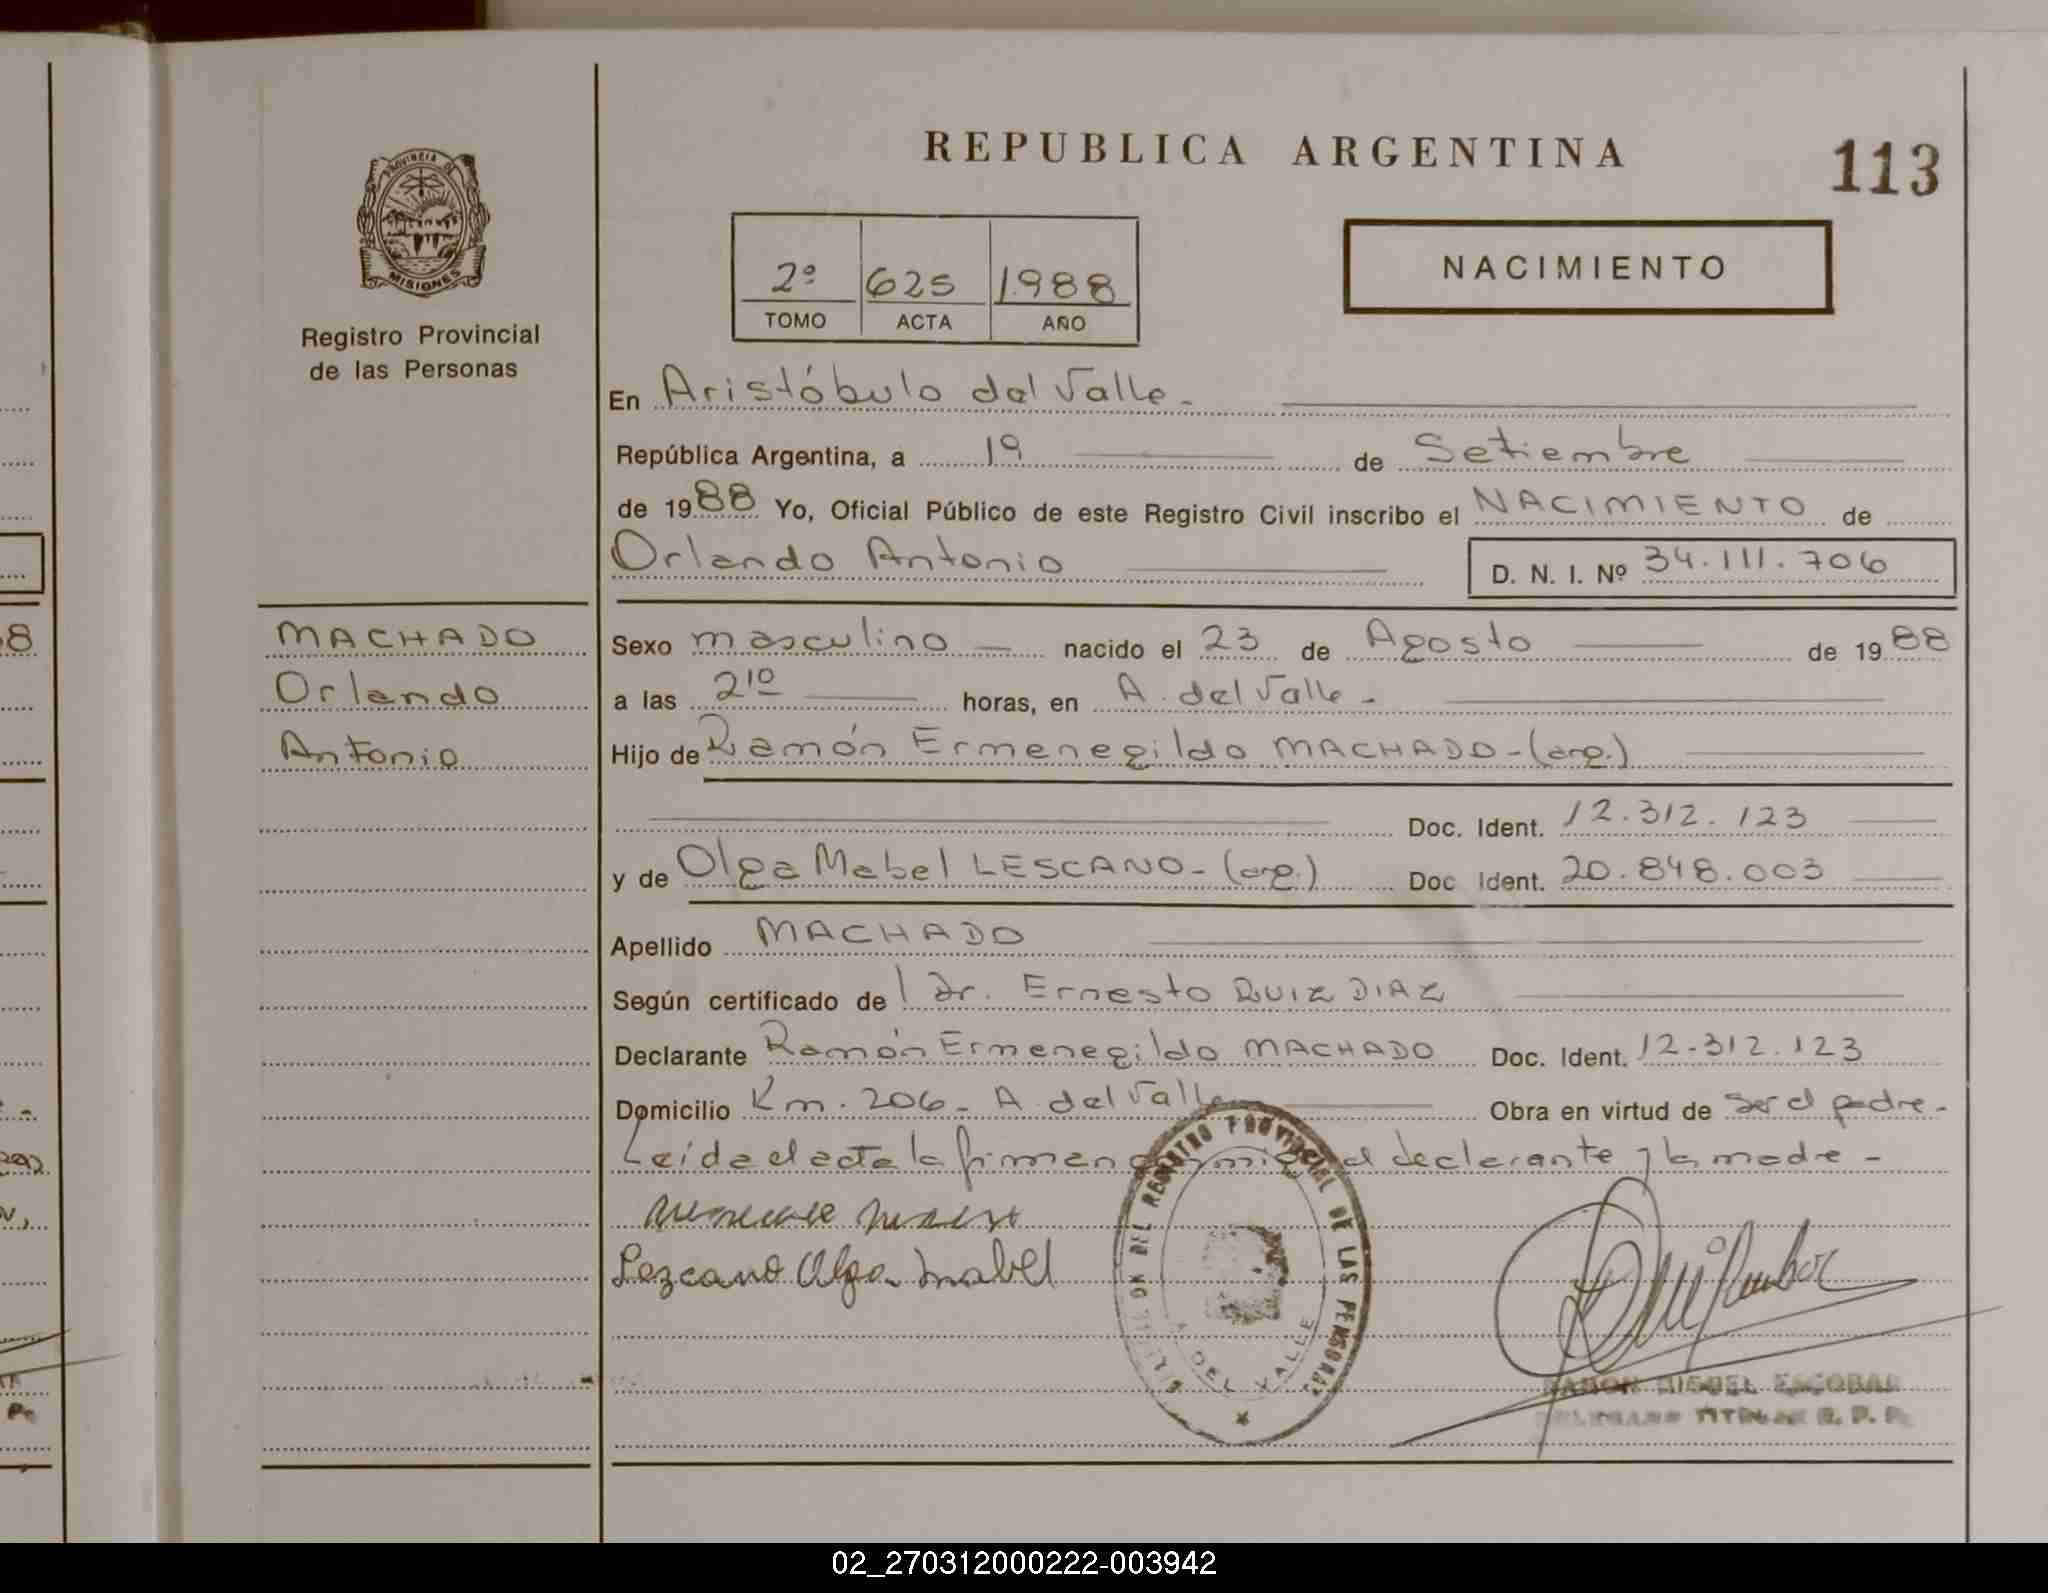 REPUBLICA ARGENTINA
113
PROVINCIA DE
MISIONES
Registro Provincial
de las Personas
2º 625 1988
TOMO ACTA AÑO
NACIMIENTO
En Aristóbulo del Valle.-
República Argentina, a 19 de Setiembre
de 1988 Yo, Oficial Público de este Registro Civil inscribo el NACIMIENTO de
Orlando Antonio D. N. I. Nº 34.111.706
MACHADO
Orlando
Antonio
Sexo masculino nacido el 23 de Agosto de 1988
a las 21º horas, en A. del Valle -
Hijo de Ramón Ermenegildo MACHADO-(arg.)
Doc. Ident. 12.312.123
y de Olga Mabel LESCANO-(arg.) Doc Ident. 20.848.003
Apellido MACHADO
Según certificado de l Dr. Ernesto RUIZ DIAZ
Declarante Ramón Ermenegildo MACHADO Doc. Ident. 12-312.123
Domicilio Km. 206- A del Valle Obra en virtud de ser el padre-
Leída el acta la firman el declarante y la madre -
Lezcano Olga Mabel
DEL REGISTRO PROVINCIAL DE LAS PERSONAS
A. DEL VALLE
RAMON MIGUEL ESCOBAR
DELEGADO TITULAR R. P. P.
02_270312000222-003942